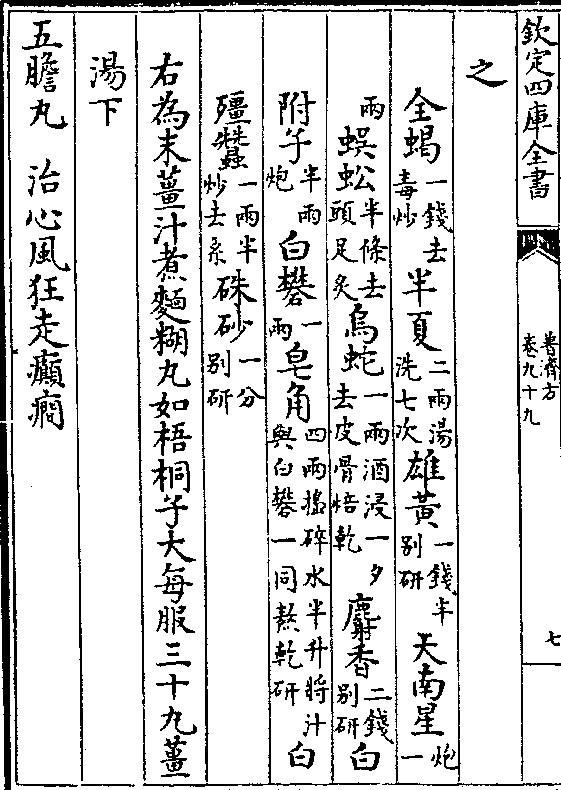 欽定四庫全書
普濟方
卷九十九
七
之
全蝎一錢去毒炒 半夏二兩湯洗七次 雄黃一錢半别研 天南星炮一
兩 蜈蚣半條去頭足炙 烏蛇一兩酒浸一夕去皮骨焙乾 麝香二錢别研 白
附子半兩炮 白礬一兩 皂角四兩搗碎水半升將汁與白礬一同熬乾研 白
殭蠶一兩半炒去糸 硃砂一分别研
右為末薑汁煮麵糊丸如梧桐子大每服三十九薑
湯下
五膽丸 治心風狂走癲癇